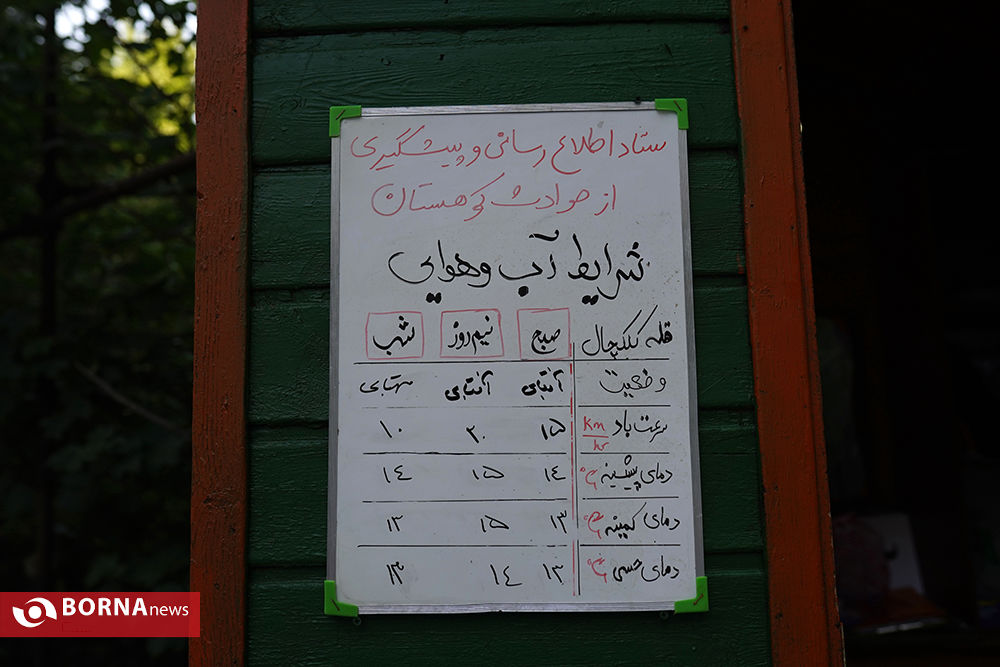 ستاد اطلاع رسانی و پیشگیری
از حوادث کوهستان
شرایط آب وهوایی
قله کلکچال صبح نیم روز شب
وضعیت آفتابی آفتابی مهتابی
سرعت باد km/hr ۱۵ ۲۰ ۱۰
دمای پیشینه °C ۱۴ ۱۵ ۱۴
دمای کمینه °C ۱۳ ۱۵ ۱۳
دمای حسی °C ۱۳ ۱۴ ۱۳
BORNA news